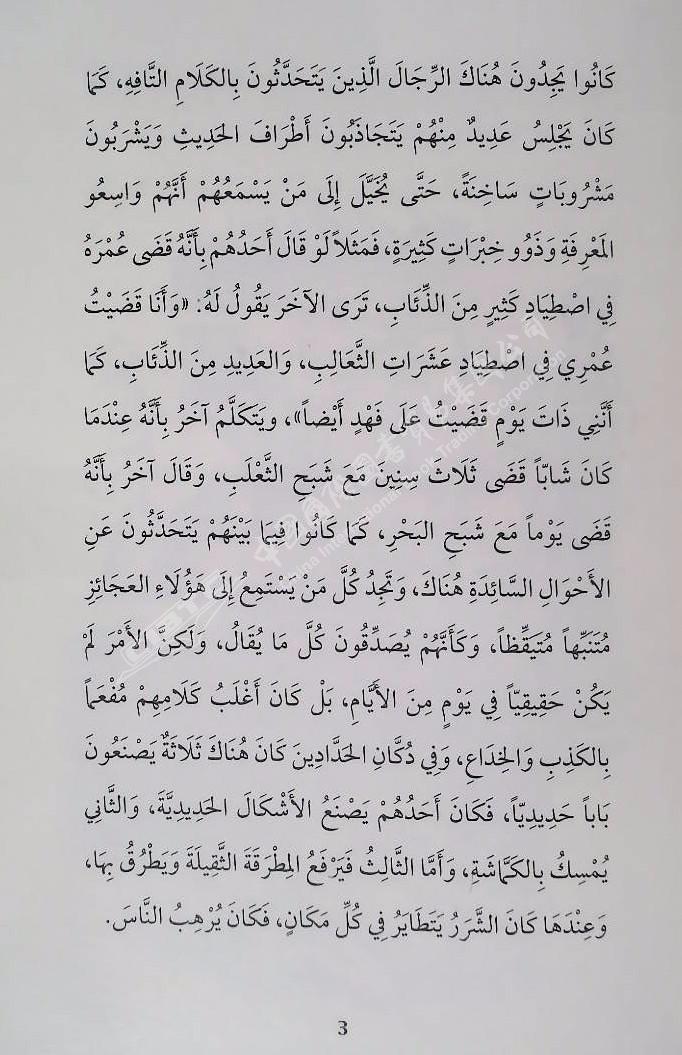 كَانُوا يَجِدُونَ هُنَاكَ الرِّجَالَ الَّذِينَ يَتَحَدَّثُونَ بِالكَلَامِ التَّافِهِ، كَمَا
كَانَ يَجْلِسُ عَدِيدٌ مِنْهُمْ يَتَجَاذَبُونَ أَطْرَافَ الحَدِيثِ وَيَشْرَبُونَ
مَشْرُوبَاتٍ سَاخِنَةً، حَتَّى يُخَيَّلَ إِلَى مَنْ يَسْمَعُهُمْ أَنَّهُمْ وَاسِعُو
المَعْرِفَةِ وَذَوُو خِبْرَاتٍ كَثِيرَةٍ، فَمَثَلاً لَوْ قَالَ أَحَدُهُمْ بِأَنَّهُ قَضَى عُمْرَهُ
فِي اصْطِيَادِ كَثِيرٍ مِنَ الذِّئَابِ، تَرَى الآخَرَ يَقُولُ لَهُ: «وَأَنَا قَضَيْتُ
عُمْرِي فِي اصْطِيَادِ عَشَرَاتِ الثَّعَالِبِ، وَالعَدِيدِ مِنَ الذِّئَابِ، كَمَا
أَنَّنِي ذَاتَ يَوْمٍ قَضَيْتُ عَلَى فَهْدٍ أَيْضاً»، وَيَتَكَلَّمُ آخَرُ بِأَنَّهُ عِنْدَمَا
كَانَ شَابّاً قَضَى ثَلَاثَ سِنِينَ مَعَ شَبَحِ الثَّعْلَبِ، وَقَالَ آخَرُ بِأَنَّهُ
قَضَى يَوْماً مَعَ شَبَحِ البَحْرِ، كَمَا كَانُوا فِيمَا بَيْنَهُمْ يَتَحَدَّثُونَ عَنِ
الأَحْوَالِ السَّائِدَةِ هُنَاكَ، وَتَجِدُ كُلَّ مَنْ يَسْتَمِعُ إِلَى هَؤُلَاءِ العَجَائِزِ
مُتَنَبِّهاً مُتَيَقِّظاً، وَكَأَنَّهُمْ يُصَدِّقُونَ كُلَّ مَا يُقَالُ، وَلَكِنَّ الأَمْرَ لَمْ
يَكُنْ حَقِيقِيّاً فِي يَوْمٍ مِنَ الأَيَّامِ، بَلْ كَانَ أَغْلَبُ كَلَامِهِمْ مُفْعَماً
بِالكَذِبِ وَالخِدَاعِ، وَفِي دُكَّانِ الحَدَّادِينَ كَانَ هُنَاكَ ثَلَاثَةٌ يَصْنَعُونَ
بَاباً حَدِيدِيّاً، فَكَانَ أَحَدُهُمْ يَصْنَعُ الأَشْكَالَ الحَدِيدِيَّةَ، وَالثَّانِي
يُمْسِكُ بِالكَمَّاشَةِ، وَأَمَّا الثَّالِثُ فَيَرْفَعُ المِطْرَقَةَ الثَّقِيلَةَ وَيَطْرُقُ بِهَا،
وَعِنْدَهَا كَانَ الشَّرَرُ يَتَطَايَرُ فِي كُلِّ مَكَانٍ، فَكَانَ يُرْهِبُ النَّاسَ.
3